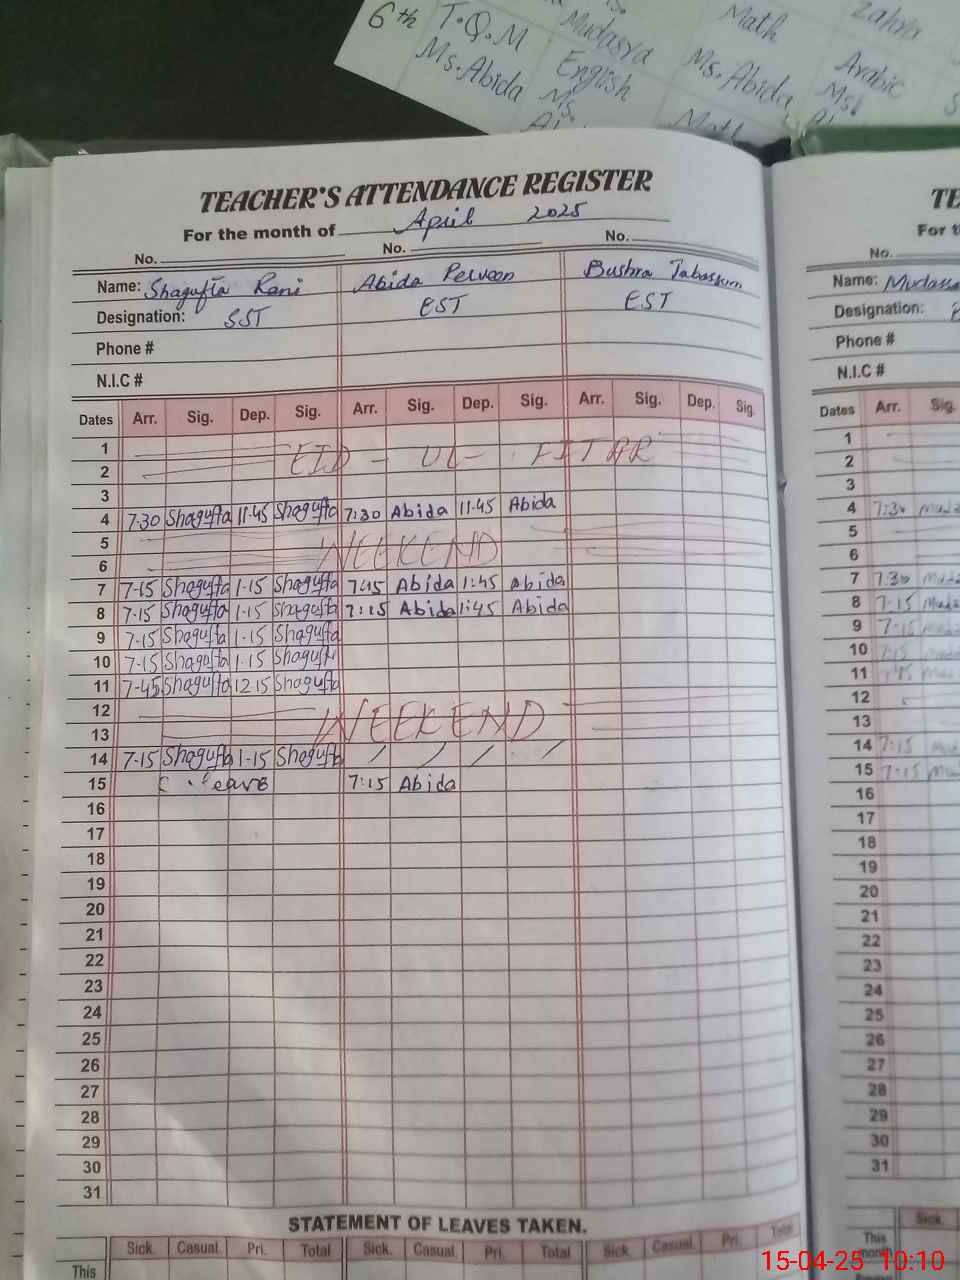 6th T.Q.M Mudasra Math Zahra
Ms. Abida English Ms. Abida Arabic
Ms. Math Ms.
TEACHER'S ATTENDANCE REGISTER
For the month of April 2025
No. No. No.
Name: Shagufta Rani Abida Perveen Bushra Tabassum
Designation: SST EST EST
Phone #
N.I.C #
Dates Arr. Sig. Dep. Sig. Arr. Sig. Dep. Sig. Arr. Sig. Dep. Sig.
1
2 EID - UL- FITAR
3
4 7-30 Shagufta 11-45 Shagufta 7:30 Abida 11-45 Abida
5
6 WEEKEND
7 7-15 Shagufta 1-15 Shagufta Abida 1:45 Abida
8 7-15 Shagufta 1-15 Shagufta 7:15 Abida 1:45 Abida
9 7-15 Shagufta 1-15 Shagufta
10 7-15 Shagufta 1-15 Shagufta
11 7-45 Shagufta 12 15 Shagufta
12
13 WEEKEND
14 7-15 Shagufta 1-15 Shagufta / / / /
15 7:15 Abida
16
17
18
19
20
21
22
23
24
25
26
27
28
29
30
31
STATEMENT OF LEAVES TAKEN.
Sick. Casual. Pri. Total Sick. Casual. Pri. Total Sick. Casual. Pri. Total
This
TE
For t
No.
Name: Mudass
Designation:
Phone #
N.I.C #
Dates Arr. Sig.
1
2
3
4 7:30
5
6
7 7:30
8 7:15
9 7:15
10 7:15
11
12
13
14 7:15
15 7:15
16
17
18
19
20
21
22
23
24
25
26
27
28
29
30
31
Sick.
This
month
15-04-25 10:10